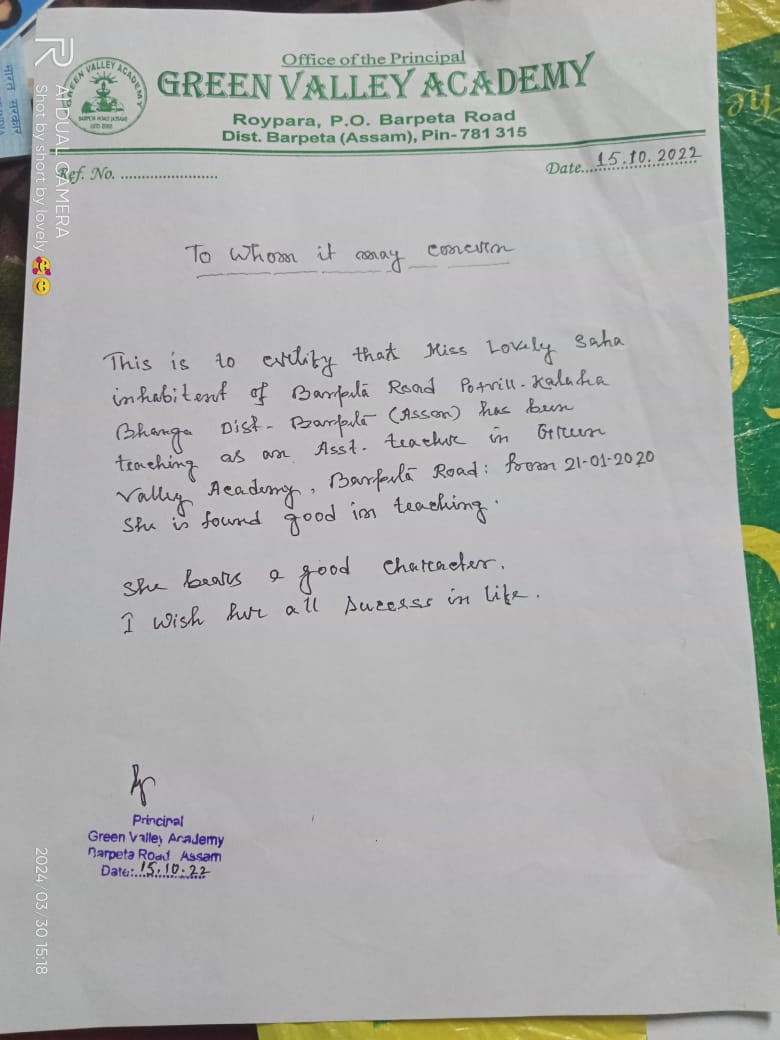 Office of the Principal
GREEN VALLEY ACADEMY
Roypara, P.O. Barpeta Road
Dist. Barpeta (Assam), Pin-781 315
GREEN VALLEY ACADEMY
Ref. No. ........................
Date...15.10.2022
To whom it may concern
This is to certify that Miss Lovely Saha
inhabitent of Barpeta Road Pot vill-Kalaha
Bhanga Dist- Barpeta (Assam) has been
teaching as an Asst. teacher in Green
Valley Academy, Barpeta Road: from 21-01-2020
She is found good in teaching.
She bears a good character.
I wish her all success in life.
Principal
Green Valley Academy
Barpeta Road Assam
Date:..15.10.22
R
AI DUAL CAMERA
Shot by short by lovely 🥰😊
2024/03/30 15:18
भारत सरकार